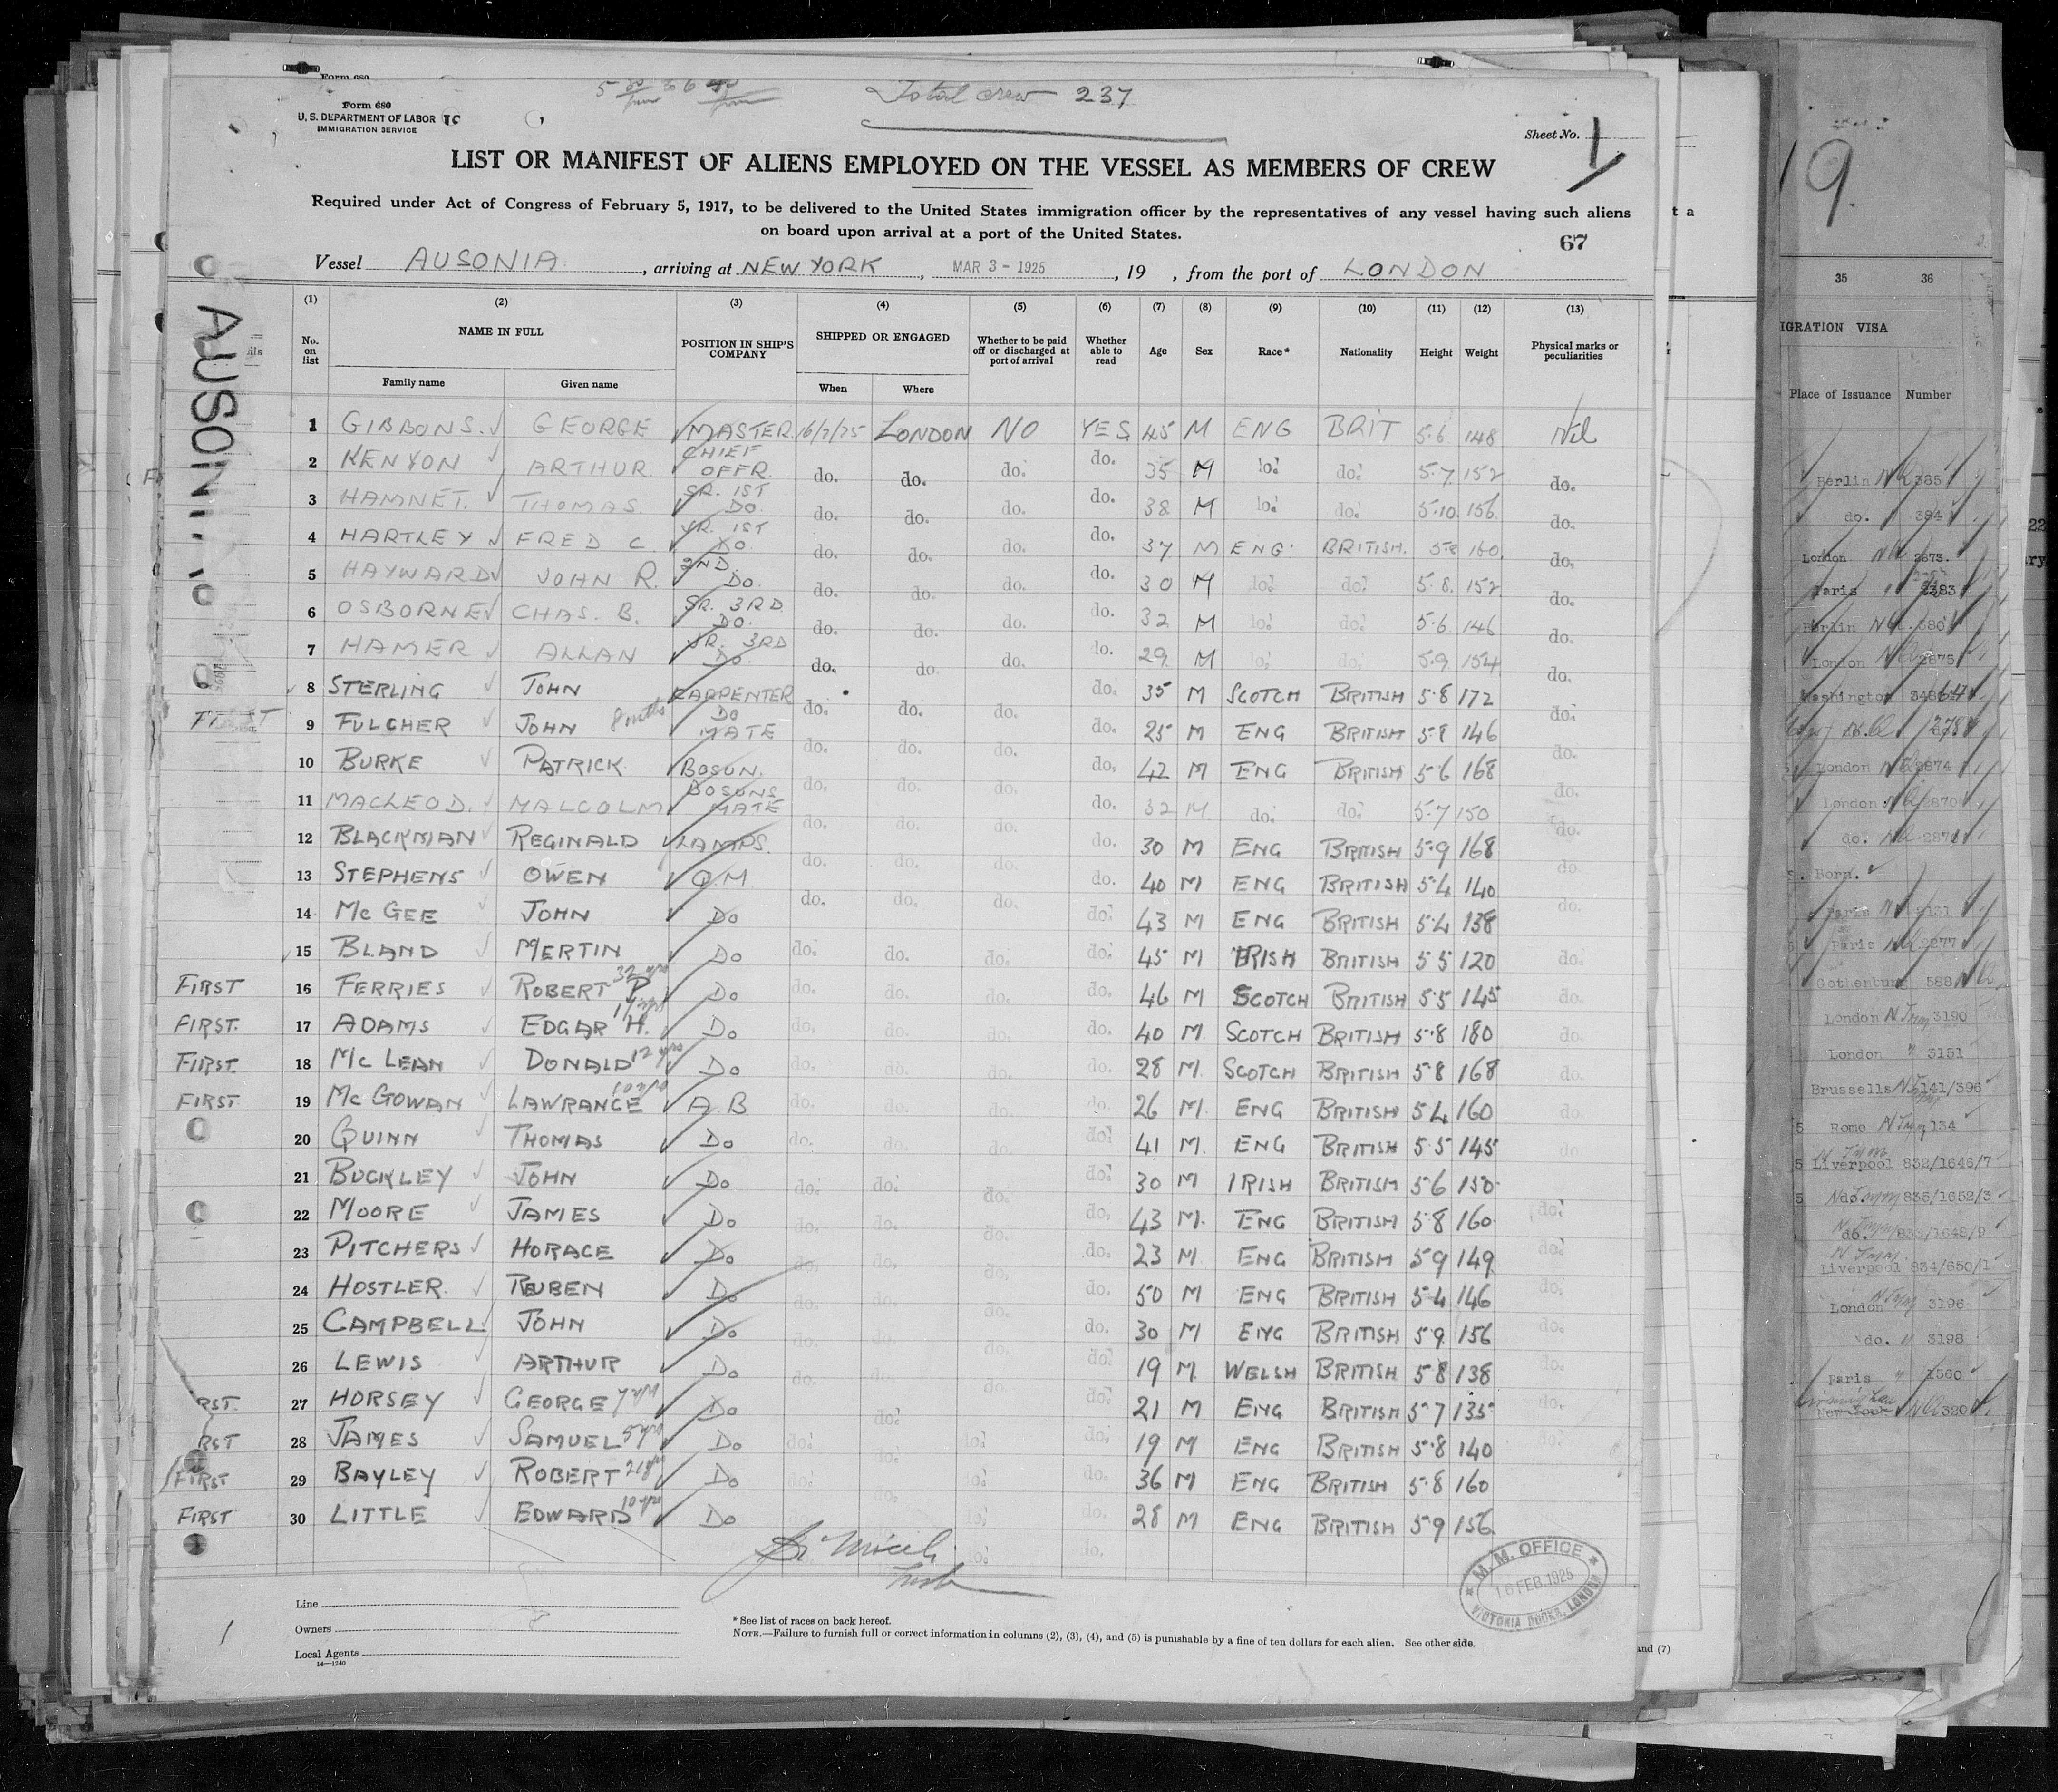 Form 680
Total crew 237
Form 680
U. S. DEPARTMENT OF LABOR
IMMIGRATION SERVICE
Sheet No. 1
LIST OR MANIFEST OF ALIENS EMPLOYED ON THE VESSEL AS MEMBERS OF CREW
Required under Act of Congress of February 5, 1917, to be delivered to the United States immigration officer by the representatives of any vessel having such aliens
on board upon arrival at a port of the United States.
67
Vessel AUSONIA, arriving at NEW YORK, MAR 3 - 1925, 19 , from the port of LONDON
AUSONIA
(1) (2) (3) (4) (5) (6) (7) (8) (9) (10) (11) (12) (13)
No. on list NAME IN FULL POSITION IN SHIP'S COMPANY SHIPPED OR ENGAGED Whether to be paid off or discharged at port of arrival Whether able to read Age Sex Race* Nationality Height Weight Physical marks or peculiarities
Family name Given name When Where
1 GIBBONS. GEORGE MASTER LONDON NO YES 45 M ENG BRIT 5.6 148 Nil
2 KENYON ARTHUR. CHIEF OFFR. do. do. do. do. 35 M do. do. 5.7 152 do.
3 HAMNET. THOMAS. SR. 1ST DO. do. do. do. do. 38 M do. do. 5.10. 156. do.
4 HARTLEY FRED C. JR. 1ST DO. do. do. do. do. 37 M ENG. BRITISH. 5.8 160. do.
5 HAYWARD JOHN R. 2ND. DO. do. do. do. do. 30 M do. do. 5.8. 152 do.
6 OSBORNE CHAS. B. SR. 3RD DO. do. do. do. do. 32 M do. do. 5.6 146 do.
7 HAMER ALLAN JR. 3RD DO. do. do. do. do. 29 M do. do. 5.9. 154 do.
8 STERLING JOHN CARPENTER do. do. do. do. 35 M SCOTCH BRITISH 5.8 172 do.
FIRST 9 FULCHER JOHN 8 mths DO MATE do. do. do. do. 25 M ENG BRITISH 5.8 146 do.
10 BURKE PATRICK BOSUN. do. do. do. do. 42 M ENG BRITISH 5.6 168 do.
11 MACLEOD. MALCOLM BOSUNS MATE do. do. do. do. 32 M do. do. 5.7 150 do.
12 BLACKMAN REGINALD LAMPS. do. do. do. do. 30 M ENG BRITISH 5.9 168 do.
13 STEPHENS OWEN Q.M do. do. do. do. 40 M ENG BRITISH 5.4 140 do.
14 MC GEE JOHN DO do. do. do. do. 43 M ENG BRITISH 5.4 138 do.
15 BLAND MERTIN DO do. do. do. do. 45 M IRISH BRITISH 5 5 120 do.
FIRST 16 FERRIES ROBERT P 32 yrs DO do. do. do. do. 46 M SCOTCH BRITISH 5.5 145 do.
FIRST. 17 ADAMS EDGAR H. DO do. do. do. do. 40 M. SCOTCH BRITISH 5.8 180 do.
FIRST. 18 MC LEAN DONALD 12 yrs DO do. do. do. do. 28 M. SCOTCH BRITISH 5.8 168 do.
FIRST 19 MC GOWAN LAWRANCE 10 yrs A B do. do. do. do. 26 M. ENG BRITISH 5 4 160 do.
20 QUINN THOMAS DO do. do. do. do. 41 M. ENG BRITISH 5.5 145 do
21 BUCKLEY JOHN DO do. do. do. do. 30 M IRISH BRITISH 5 6 150
22 MOORE JAMES DO do. do. do. do. 43 M. ENG BRITISH 5 8 160 do.
23 PITCHERS HORACE DO do. do. do. do. 23 M. ENG BRITISH 5 9 149 do.
24 HOSTLER. REUBEN DO do. do. do. do. 50 M ENG BRITISH 5.4 146 do.
25 CAMPBELL JOHN DO do. do. do. do. 30 M ENG BRITISH 5 9. 156 do.
26 LEWIS ARTHUR DO do. do. do. do. 19 M. WELSH BRITISH 5 8 138 do.
RST. 27 HORSEY GEORGE 7 yrs DO do. do. do. 21 M ENG BRITISH 5 7 135 do.
RST 28 JAMES SAMUEL 5 yrs DO do. do. do. 19 M ENG BRITISH 5.8 140 do.
FIRST 29 BAYLEY ROBERT DO do. do. do. 36 M ENG BRITISH 5.8 160
FIRST 30 LITTLE EDWARD 10 yrs DO do. do. 28 M ENG BRITISH 5 9 156
do. do.
M. M. OFFICE
16 FEB. 1925
VICTORIA DOCKS, LONDON
Line
Owners
Local Agents
14—1240
*See list of races on back hereof.
NOTE.—Failure to furnish full or correct information in columns (2), (3), (4), and (5) is punishable by a fine of ten dollars for each alien. See other side.
1
t a
and (7)
19.
35 36
IGRATION VISA
Place of Issuance Number
Berlin 385
do. 384
London 2873.
Paris 2383
Berlin 380
London 2875
Washington
London 2874
London 2870
do. 2871
Born.
Paris 3131
Paris 2877
Gothenburg 588
London 3190
London 3151
Brussels 141/396
Rome 134
Liverpool 832/1646/7
do. 835/1652/3
do. 833/1648/9
Liverpool 834/650/1
London 3196
do. 3198
Paris 1560
New York 320